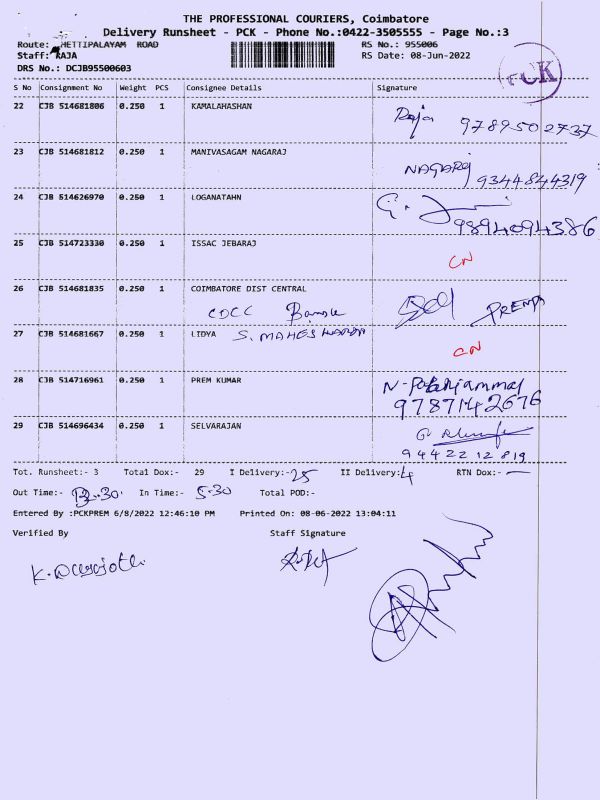 THE PROFESSIONAL COURIERS, Coimbatore
Delivery Runsheet - PCK - Phone No.:0422-3505555 - Page No.:3
Route: HETTIPALAYAM ROAD RS No.: 955006
Staff: RAJA RS Date: 08-Jun-2022
DRS No.: DCJB95500603
PCK
S No Consignment No Weight PCS Consignee Details Signature
22 CJB 514681806 0.250 1 KAMALAHASHAN Raja 9789502737
23 CJB 514681812 0.250 1 MANIVASAGAM NAGARAJ NAGARAJ 9344844319
24 CJB 514626970 0.250 1 LOGANATAHN G. 9894094386
25 CJB 514723330 0.250 1 ISSAC JEBARAJ CN
26 CJB 514681835 0.250 1 COIMBATORE DIST CENTRAL
CDCC Bank PREMA
27 CJB 514681667 0.250 1 LIDYA S. CN
28 CJB 514716961 0.250 1 PREM KUMAR N-Palaniammal
9787142676
29 CJB 514696434 0.250 1 SELVARAJAN G.
9442212819
Tot. Runsheet:- 3 Total Dox:- 29 I Delivery:- 25 II Delivery:- 4 RTN Dox:- —
Out Time:- 12.30. In Time:- 5.30 Total POD:-
Entered By :PCKPREM 6/8/2022 12:46:10 PM Printed On: 08-06-2022 13:04:11
Verified By Staff Signature